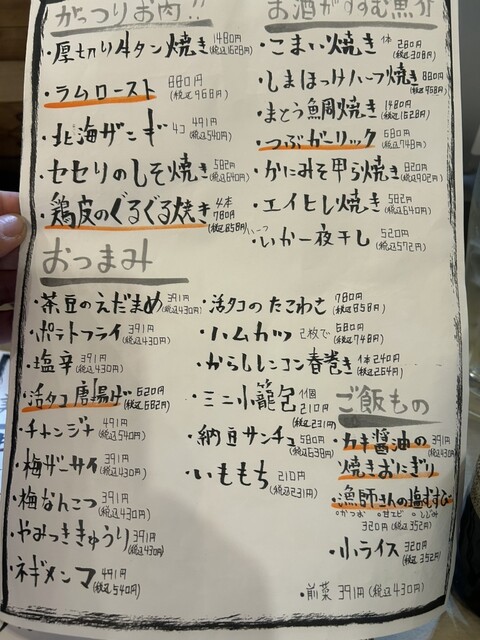 がっつりお肉!!
・厚切り牛タン焼き 1480円(税込1628円)
・ラムロースト 880円(税込968円)
・北海ザンギ 4コ 491円(税込540円)
・セセリのしそ焼き 582円(税込640円)
・鶏皮のぐるぐる焼き 4本 780円(税込858円)
お酒がすすむ魚介
・こまい焼き 1本 280円(税込308円)
・しまほっけハーフ焼き 880円(税込968円)
・まとう鯛焼き 1480円(税込1628円)
・つぶガーリック 680円(税込748円)
・かにみそ甲ら焼き 820円(税込902円)
・エイヒレ焼き 582円(税込640円)
・いか一夜干し 520円(税込572円)
おつまみ
・茶豆のえだまめ 391円(税込430円)
・ポテトフライ 391円(税込430円)
・塩辛 391円(税込430円)
・活タコ唐揚げ 620円(税込682円)
・チャンジャ 491円(税込540円)
・梅ザーサイ 391円(税込430円)
・梅なんこつ 391円(税込430円)
・やみつききゅうり 391円(税込430円)
・ネギメンマ 491円(税込540円)
・活タコのたこわさ 780円(税込858円)
・ハムカツ 2枚で 680円(税込748円)
・からしレンコン春巻き 1本240円(税込264円)
・ミニ小籠包 1個 210円(税込231円)
・納豆サンチュ 580円(税込638円)
・いももち 210円(税込231円)
ご飯もの
・カキ醤油の焼きおにぎり 391円(税込430円)
・漁師さんの塩むすび
○かつお ○甘エビ ○しじみ
320円(税込352円)
・小ライス 320円(税込352円)
・前菜 391円(税込430円)